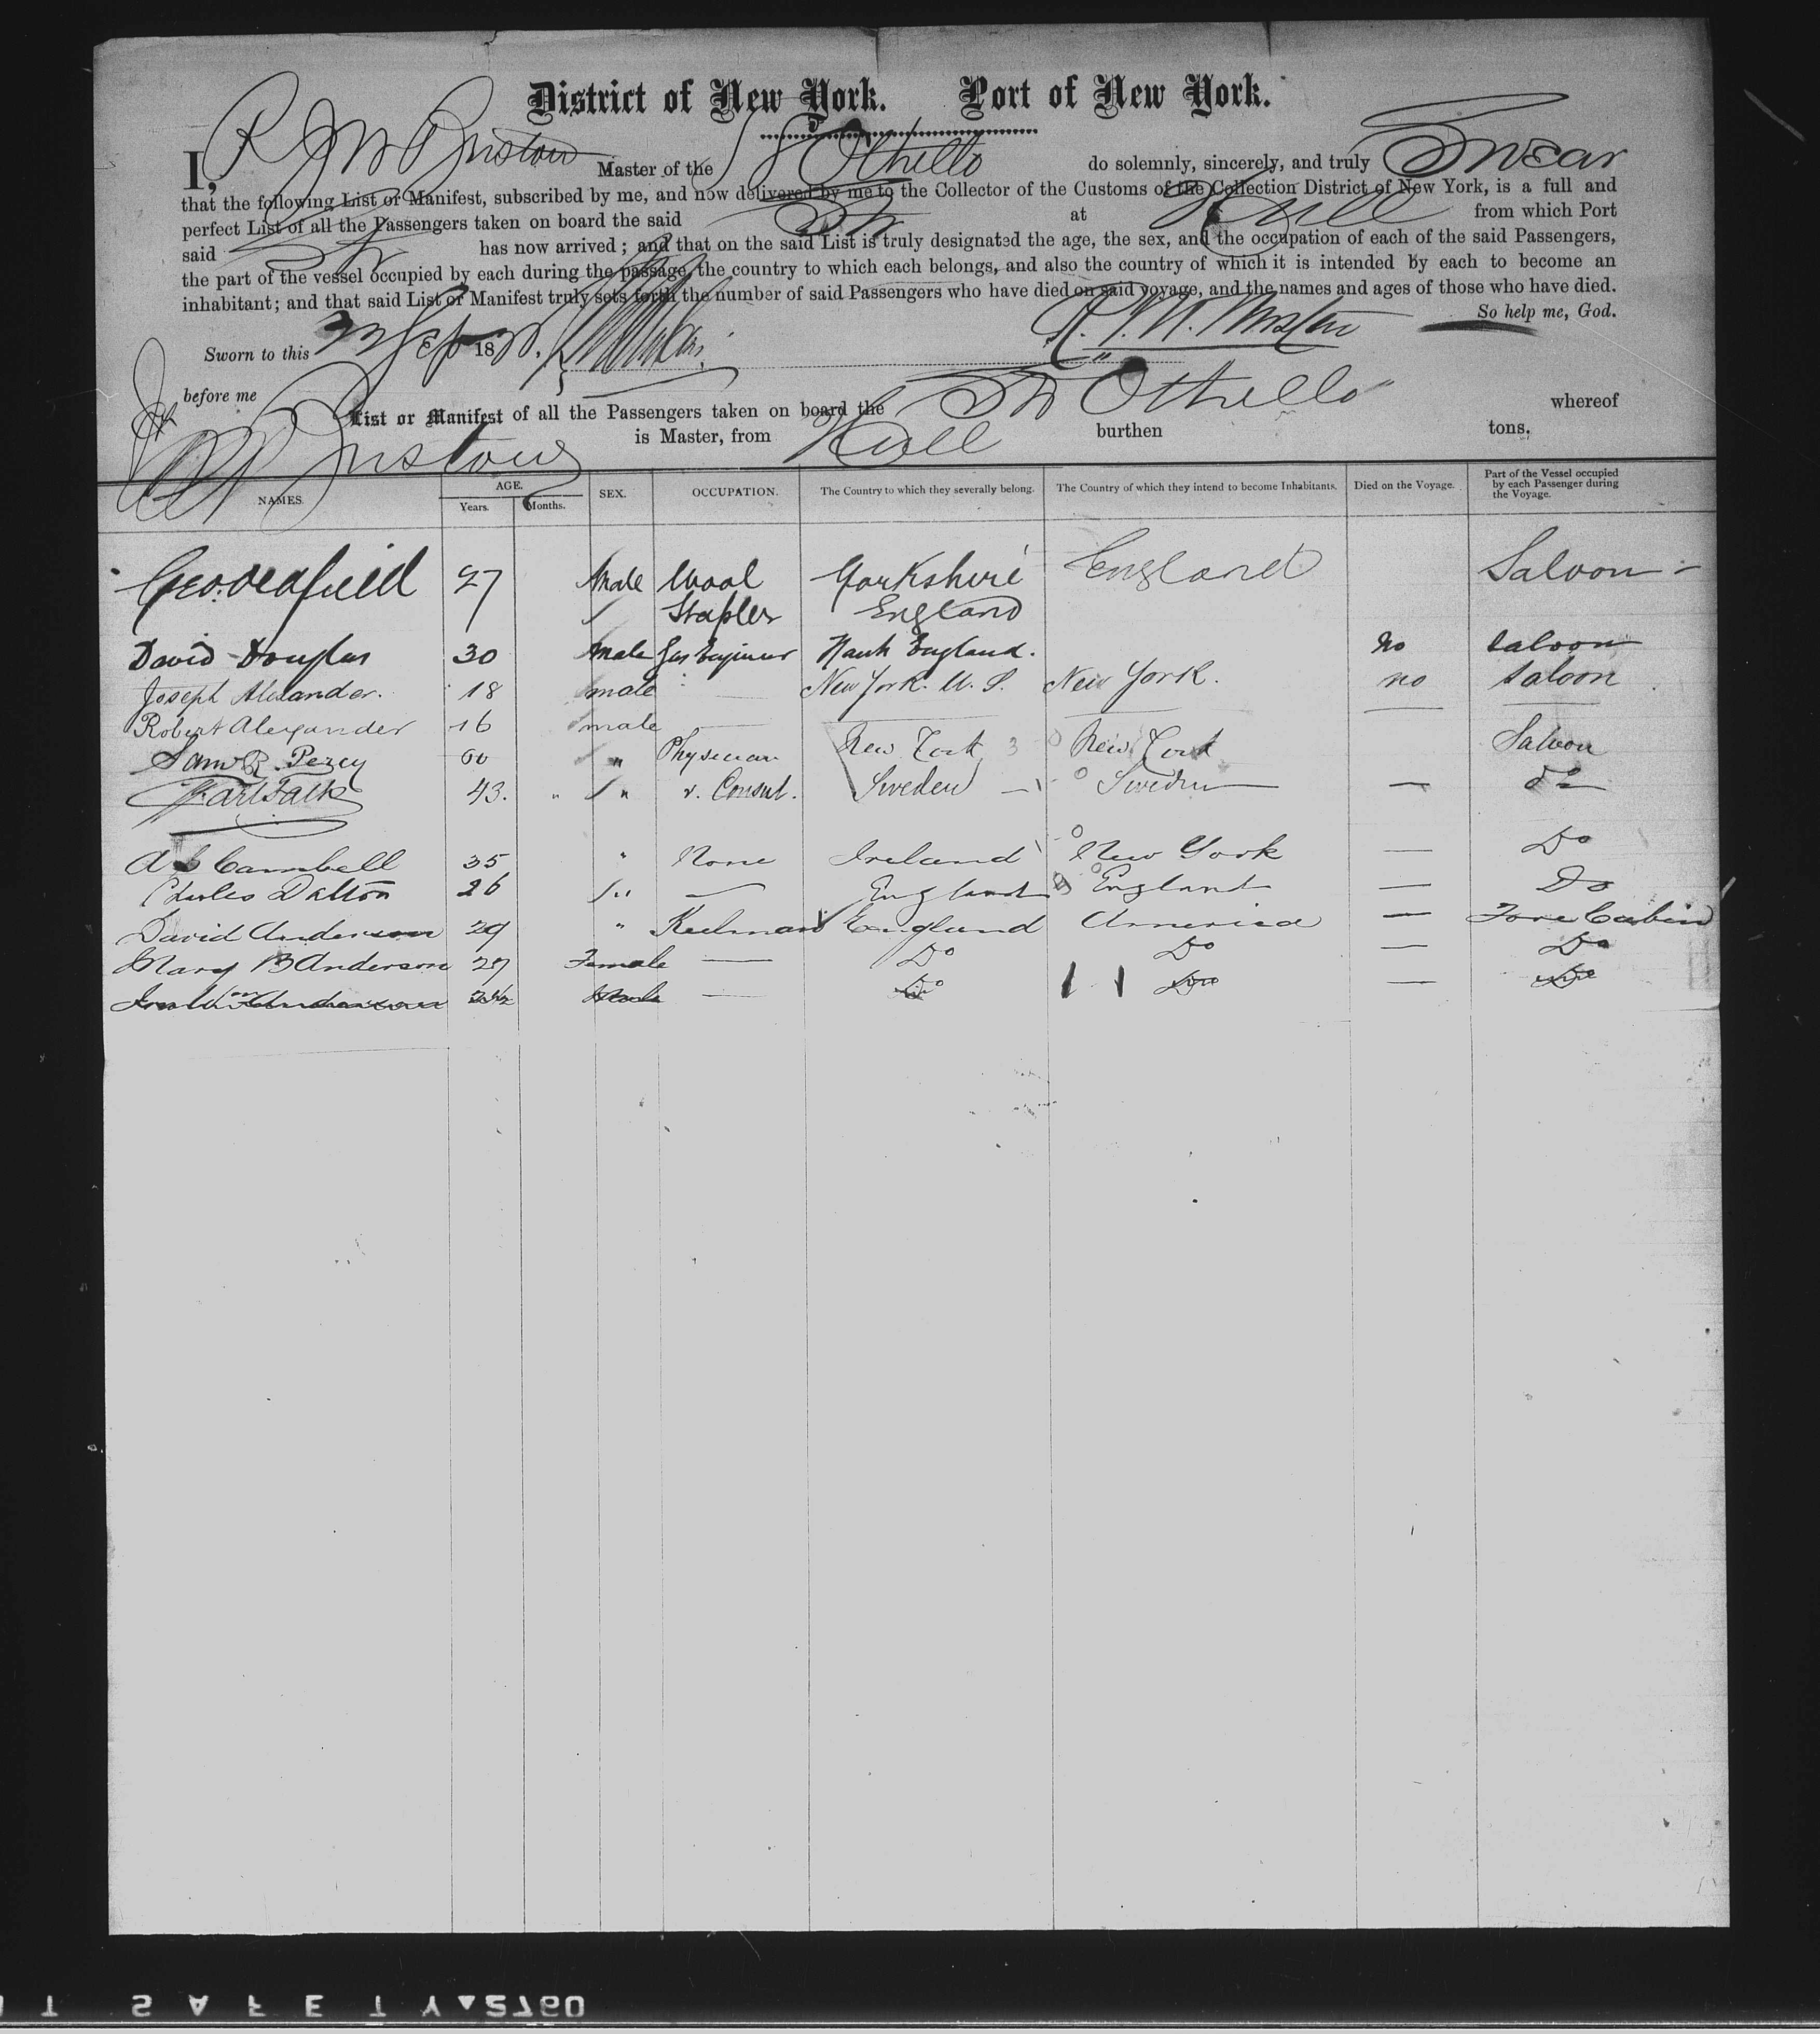 District of New York. Port of New York.
I, Master of the Othello do solemnly, sincerely, and truly Swear
that the following List or Manifest, subscribed by me, and now delivered by me to the Collector of the Customs of the Collection District of New York, is a full and
perfect List of all the Passengers taken on board the said Str at Hull from which Port
said Str has now arrived; and that on the said List is truly designated the age, the sex, and the occupation of each of the said Passengers,
the part of the vessel occupied by each during the passage, the country to which each belongs, and also the country of which it is intended by each to become an
inhabitant; and that said List or Manifest truly sets forth the number of said Passengers who have died on said voyage, and the names and ages of those who have died.
So help me, God.
Sworn to this Sep 18
before me
List or Manifest of all the Passengers taken on board the Othello whereof
is Master, from Hull burthen tons.
NAMES. AGE. Years. Months. SEX. OCCUPATION. The Country to which they severally belong. The Country of which they intend to become Inhabitants. Died on the Voyage. Part of the Vessel occupied by each Passenger during the Voyage.
Geo. Oldfield 27 Male Wool Yorkshire England Saloon
Stapler England
David Douglas 30 male Gas Engineer England. no saloon
Joseph Alexander. 18 male — New York. U. S. New York. no saloon
Robert Alexander 16 male —
Saml R. Percy 60 " Physician New York 3 New York Saloon
Carl Falk 43. " " v. Consul. Sweden — Sweden — do
Cambell 35 " None Ireland New York — Do
Charles Dalton 26 " — England England — Do
David Anderson 29 " Keelman England America — Fore Cabin
Mary B Anderson 27 Female — Do Do — Do
Anderson — Do Do — Do
SAFETY 2760